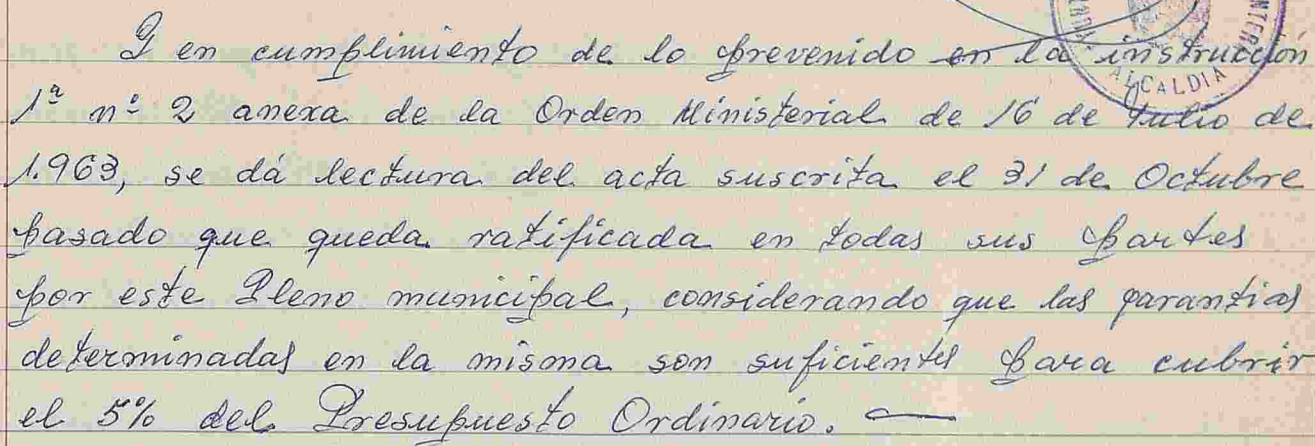 Y en cumplimiento de lo prevenido en la instrucción
1ª nº 2 anexa de la Orden Ministerial de 16 de Julio de
1.963, se dá lectura del acta suscrita el 31 de Octubre
pasado que queda ratificada en todas sus partes
por este Pleno municipal, considerando que las garantias
determinadas en la misma son suficientes para cubrir
el 5% del Presupuesto Ordinario.
ALCALDIA